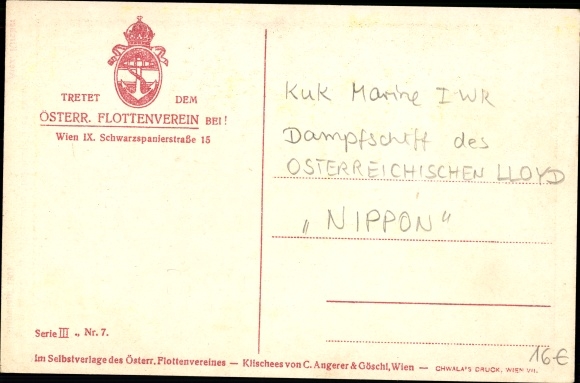 TRETET DEM
ÖSTERR. FLOTTENVEREIN BEI!
Wien IX. Schwarzspanierstraße 15
KuK Marine I WK
Dampfschiff des
ÖSTERREICHISCHEN LLOYD
„NIPPON“
Serie III ., Nr. 7.
16€
Im Selbstverlage des Österr. Flottenvereines — Klischees von C. Angerer & Göschl, Wien — CHWALA'S DRUCK, WIEN VII.